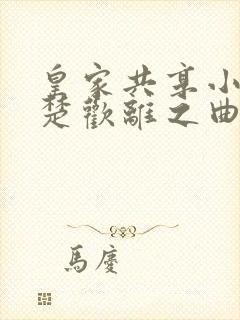 皇家共享小
楚歡離之曲
馬慶